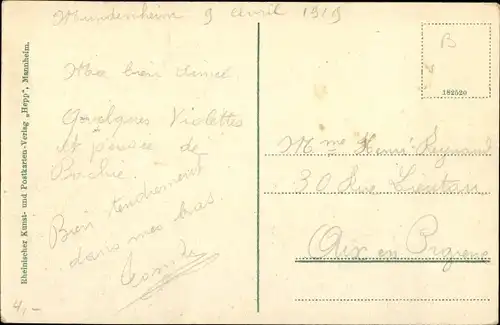 Mundenheim 9 avril 1919
Ma bien aimée
Quelques Violettes
et pensée de
Bochie.
Bien tendrement
dans mes bras.
Rheinischer Kunst- und Postkarten-Verlag „Hepp“, Mannheim.
4,-
B
182520
Mme Henri Reynaud
30 Rue Lieutau
Aix en